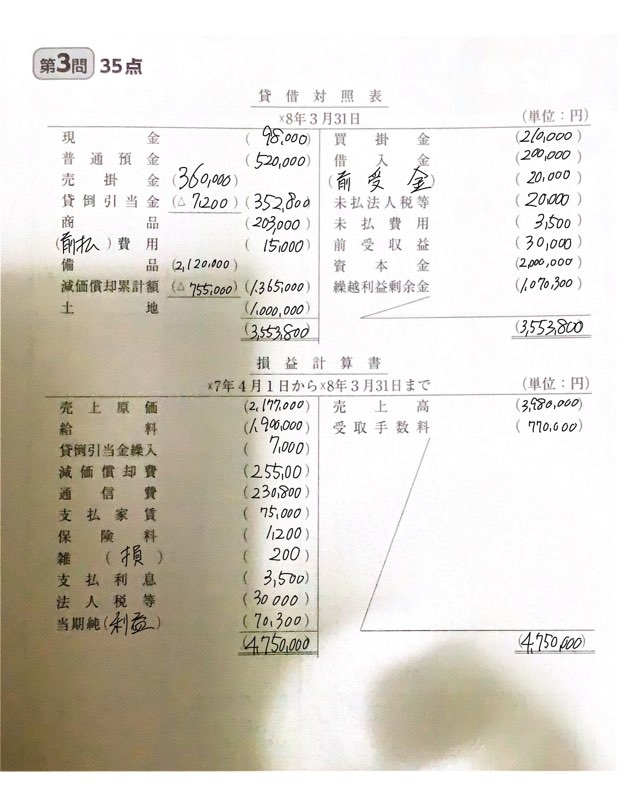 第3問 35点
貸借対照表
×8年3月31日 (単位：円)
現金 (98,000) 買掛金 (210,000)
普通預金 (520,000) 借入金 (200,000)
売掛金 (360,000) (前受金) (20,000)
貸倒引当金 (△7,200) (352,800) 未払法人税等 (20,000)
商品 (203,000) 未払費用 (3,500)
(前払)費用 (15,000) 前受収益 (30,000)
備品 (2,120,000) 資本金 (2,000,000)
減価償却累計額 (△755,000) (1,365,000) 繰越利益剰余金 (1,070,300)
土地 (1,000,000)
(3,553,800) (3,553,800)
損益計算書
×7年4月1日から×8年3月31日まで (単位：円)
売上原価 (2,177,000) 売上高 (3,980,000)
給料 (1,900,000) 受取手数料 (770,000)
貸倒引当金繰入 (7,000)
減価償却費 (255,00)
通信費 (230,800)
支払家賃 (75,000)
保険料 (1,200)
雑(損) (200)
支払利息 (3,500)
法人税等 (30000)
当期純(利益) (70,300)
(4,750,000) (4,750,000)